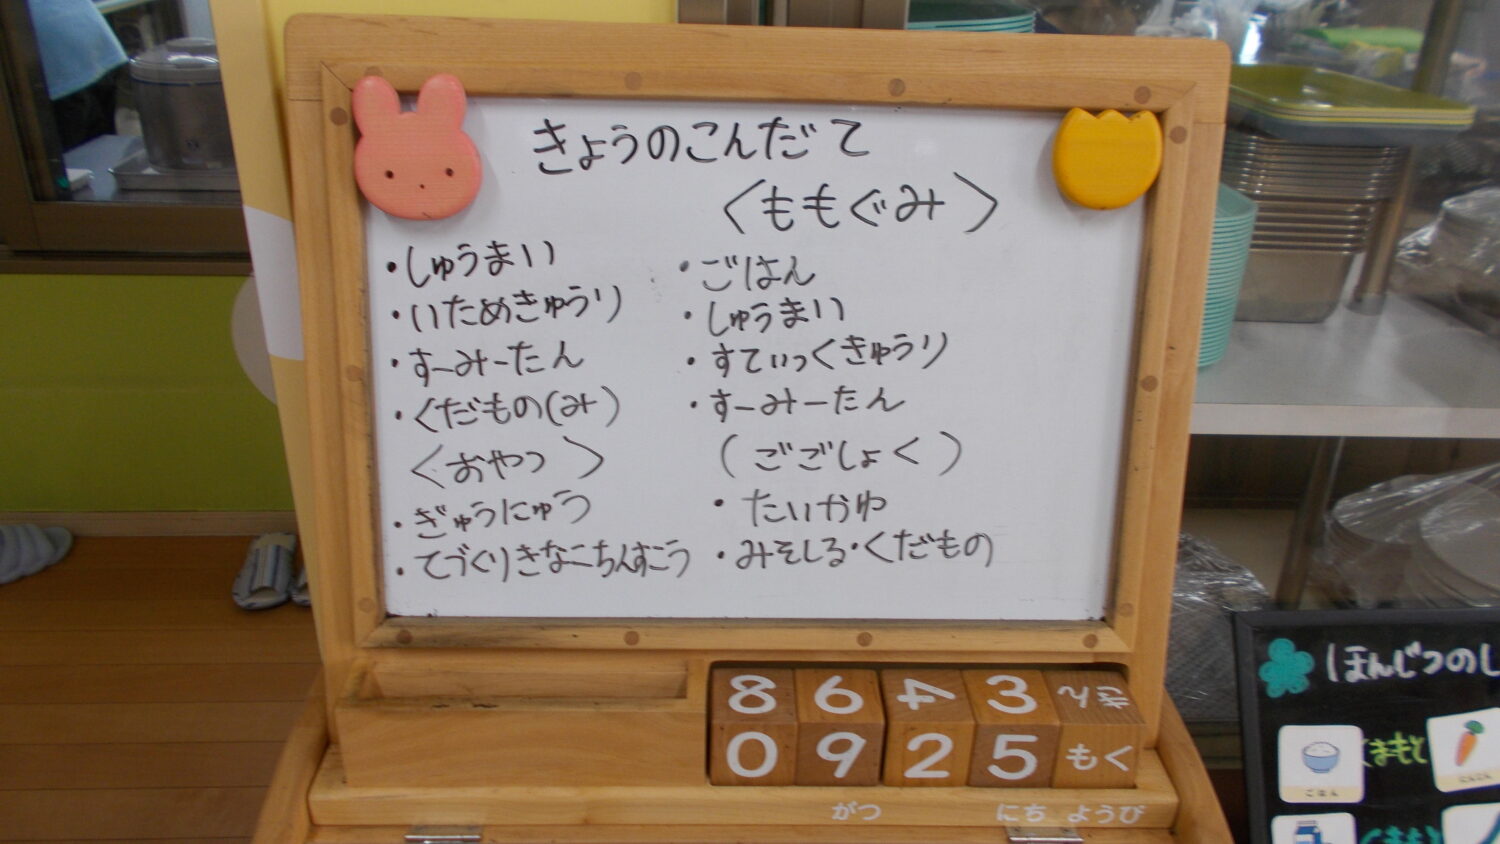 きょうのこんだて
〈ももぐみ〉
・しゅうまい
・いためきゅうり
・すーみーたん
・くだもの(み)
〈おやつ〉
・ぎゅうにゅう
・てづくりきなこちんすこう
・ごはん
・しゅうまい
・すてぃっくきゅうり
・すーみーたん
(ごごしょく)
・たいかゆ
・みそしる・くだもの
8 6 4 3
0 9 2 5 もく
がつ にち ようび
ほんじつのし
ごはん
くまもと
にんじん
くまもと